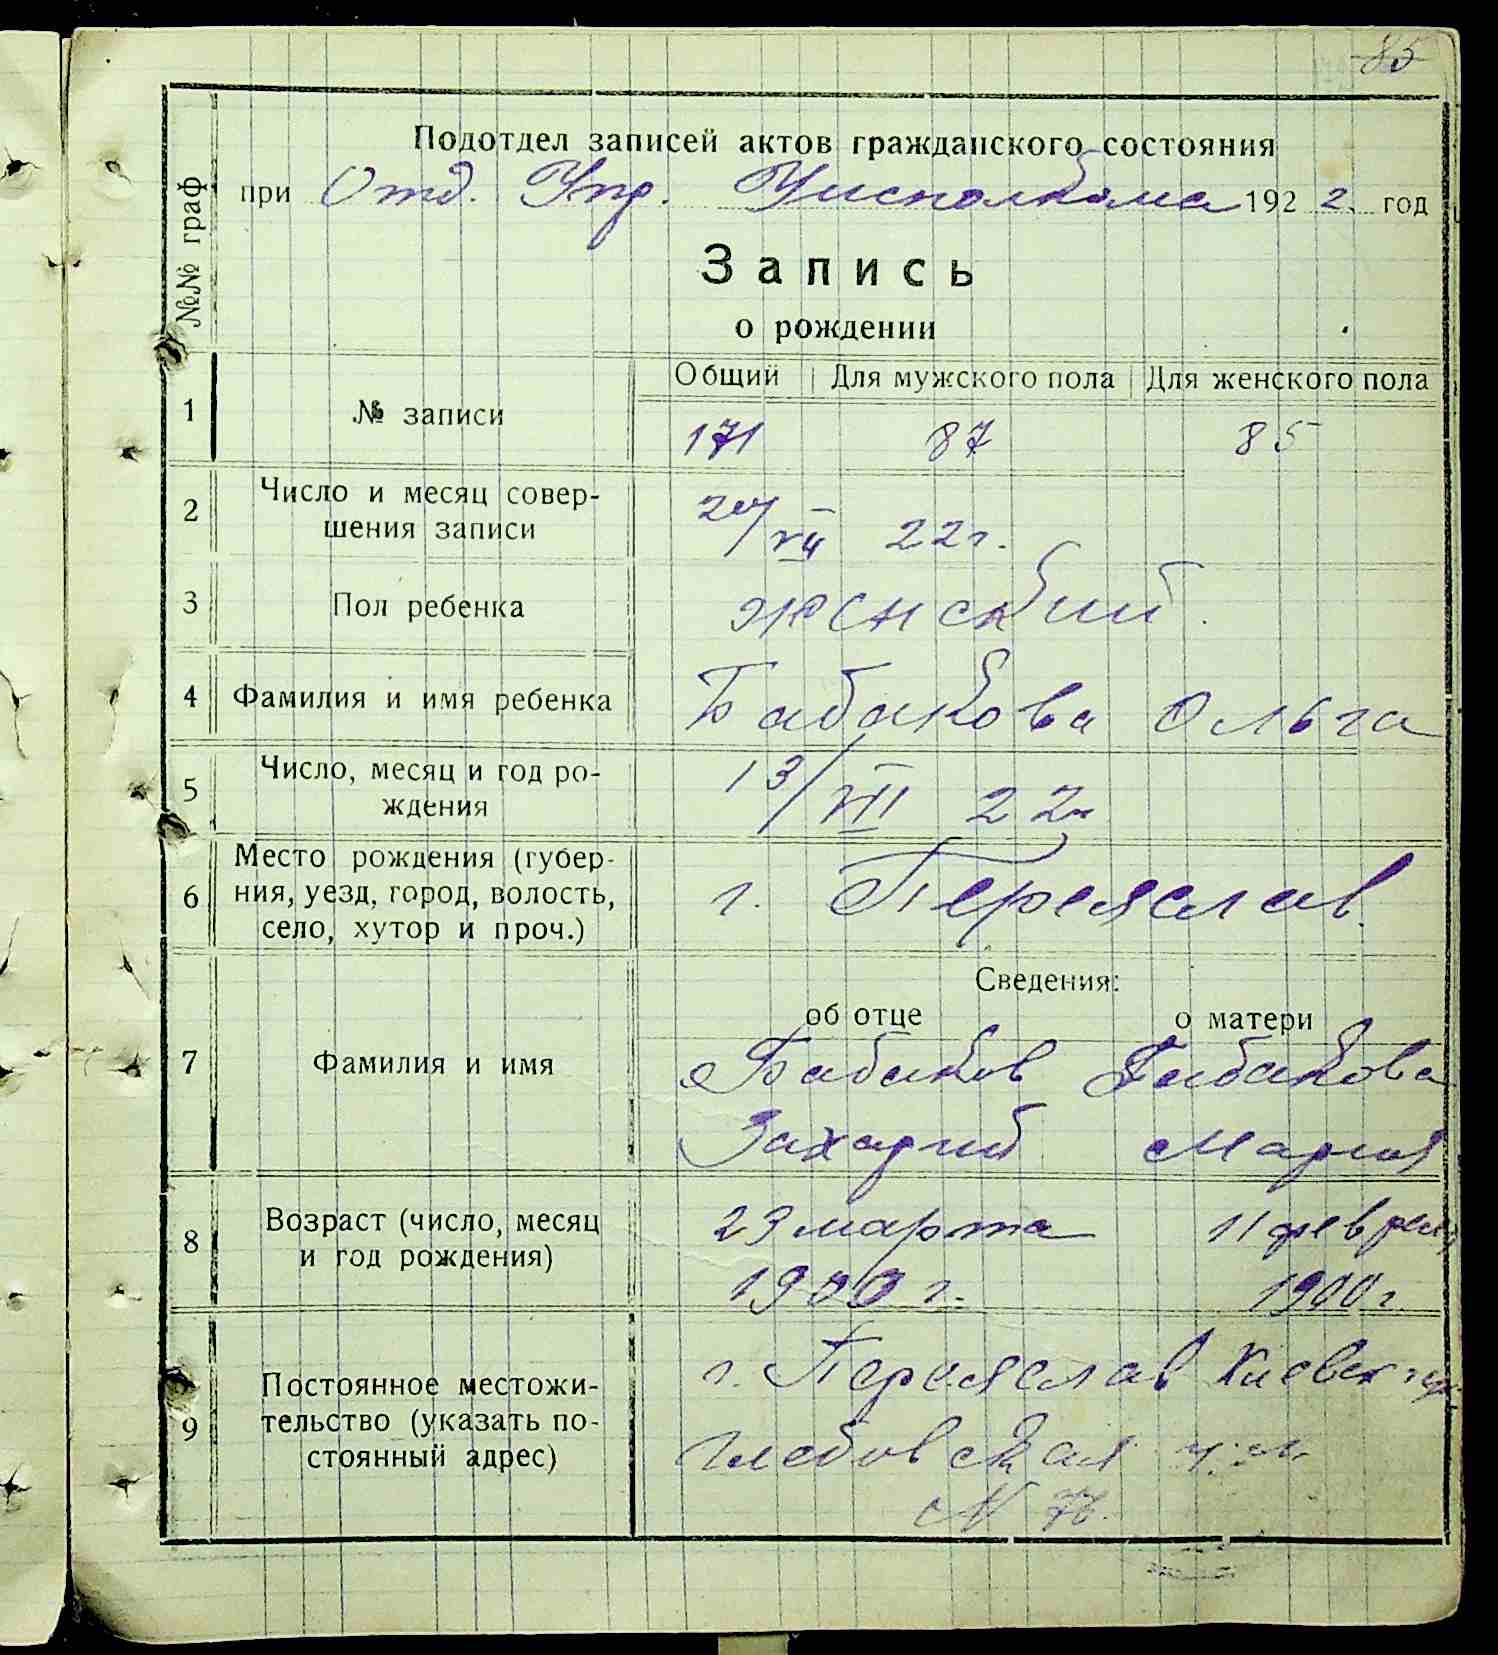 85
№№ граф
Подотдел записей актов гражданского состояния
при Отд. Упр. Уисполкома 1922 год
Запись
о рождении
Общий Для мужского пола Для женского пола
1 № записи 171 87 85
2 Число и месяц совер-
шения записи 20/VII 22г.
3 Пол ребенка женский
4 Фамилия и имя ребенка Бабакова Ольга
5 Число, месяц и год ро-
ждения 13/VII 22г
6 Место рождения (губер-
ния, уезд, город, волость,
село, хутор и проч.) г. Переяслав
Сведения:
об отце о матери
7 Фамилия и имя Бабаков Бабакова
Захарий Мария
8 Возраст (число, месяц
и год рождения) 23 марта 11 февраля
1900 г. 1900 г
9 Постоянное местожи-
тельство (указать по-
стоянный адрес) г. Переяслав Киевск губ
Глебовская ул.
№ 76.